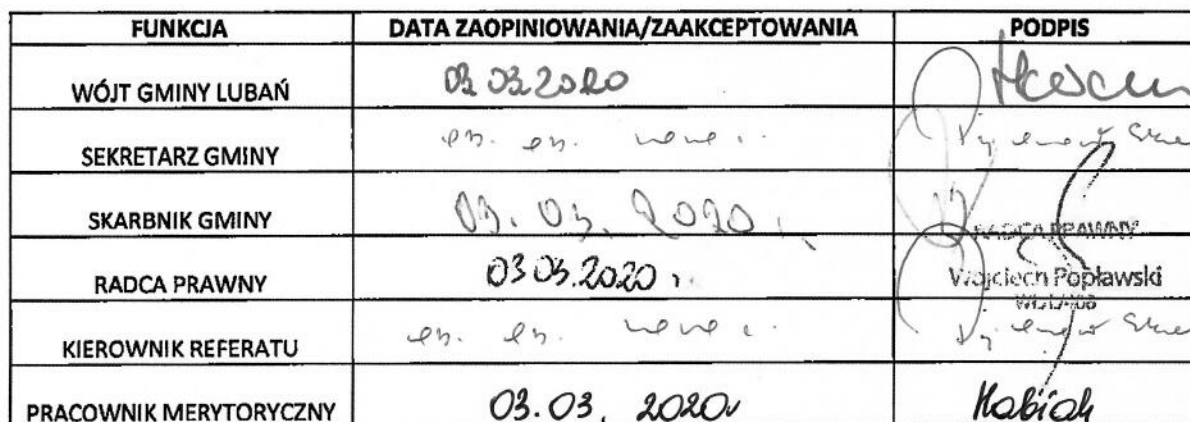 FUNKCJA DATA ZAOPINIOWANIA/ZAAKCEPTOWANIA PODPIS
WÓJT GMINY LUBAŃ 03.03.2020
SEKRETARZ GMINY
SKARBNIK GMINY 03.03.2020
RADCA PRAWNY
RADCA PRAWNY 03.03.2020 r. Wojciech Popławski
KIEROWNIK REFERATU
PRACOWNIK MERYTORYCZNY 03.03.2020r